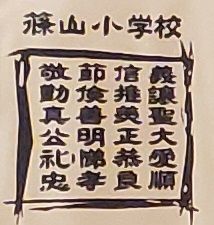 篠山小学校
義讓聖大順
信推英正恭良
節儉善明悌孝
敬勤真公礼忠